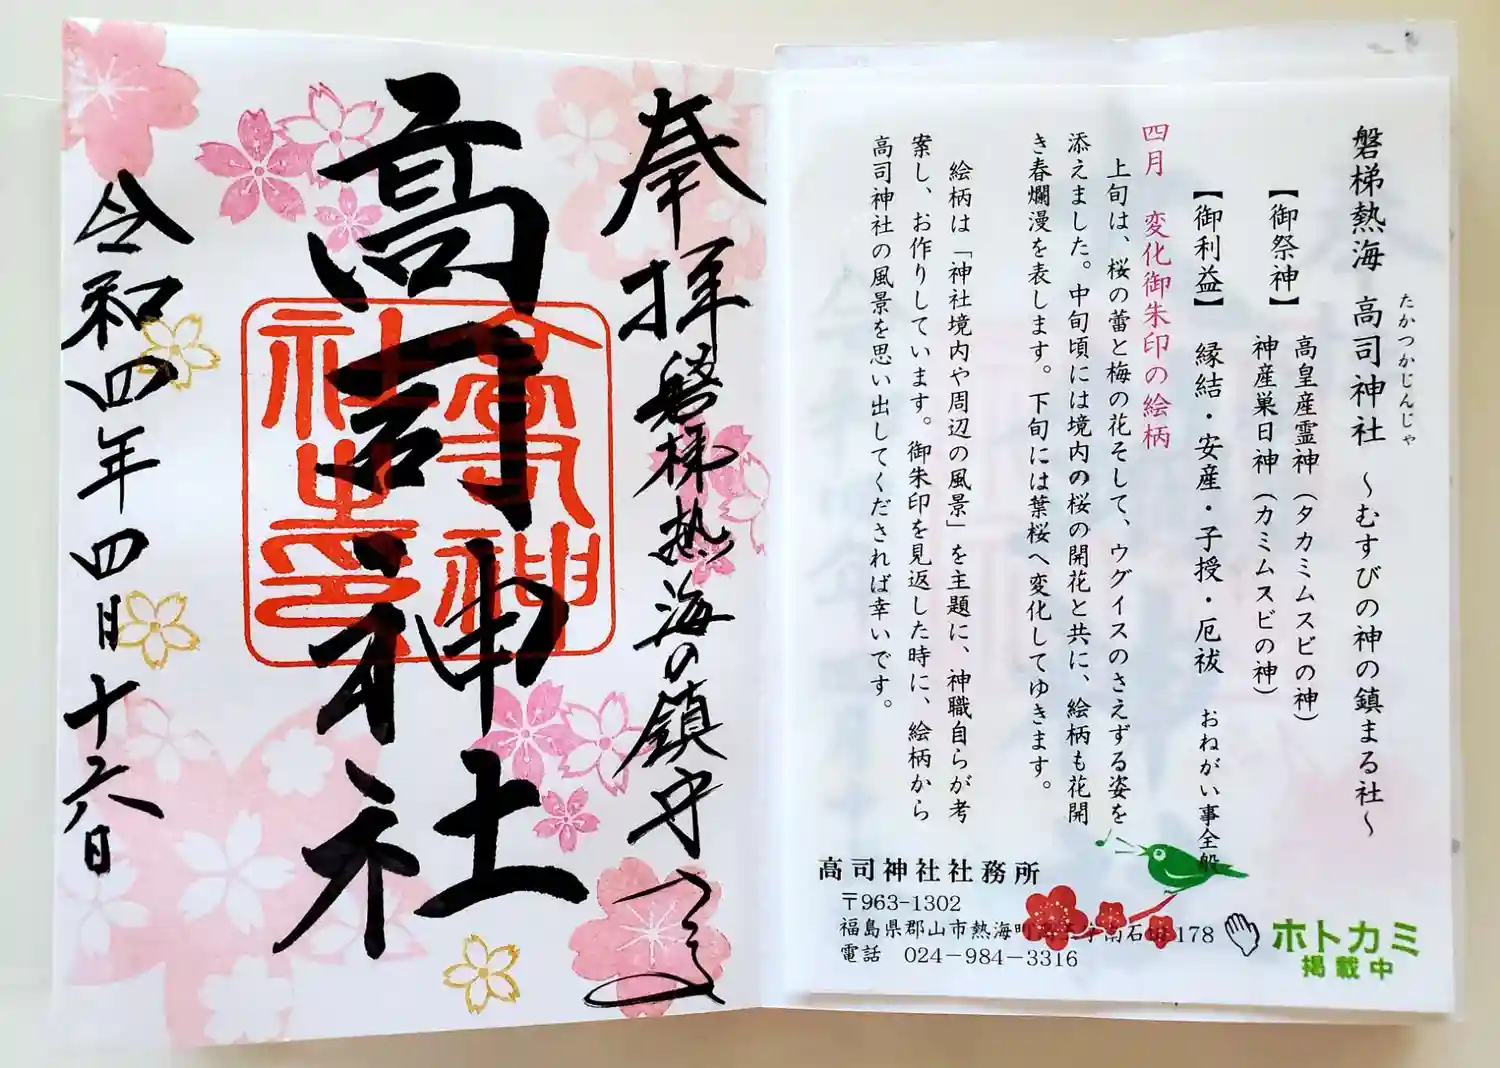 奉拝 磐梯熱海の鎮守
高司神社
高司神社之印
令和四年四月十六日
磐梯熱海 高司神社 〜むすびの神の鎮まる社〜
たかつかじんじゃ
【御祭神】 高皇産霊神（タカミムスビの神）
神産巣日神（カミムスビの神）
【御利益】 縁結・安産・子授・厄祓 おねがい事全般
四月 変化御朱印の絵柄
上旬は、桜の蕾と梅の花そして、ウグイスのさえずる姿を
添えました。中旬頃には境内の桜の開花と共に、絵柄も花開
き春爛漫を表します。下旬には葉桜へ変化してゆきます。
絵柄は「神社境内や周辺の風景」を主題に、神職自らが考
案し、お作りしています。御朱印を見返した時に、絵柄から
高司神社の風景を思い出してくだされば幸いです。
高司神社社務所
〒963-1302
福島県郡山市熱海町 南石 178
電話 024-984-3316
ホトカミ
掲載中